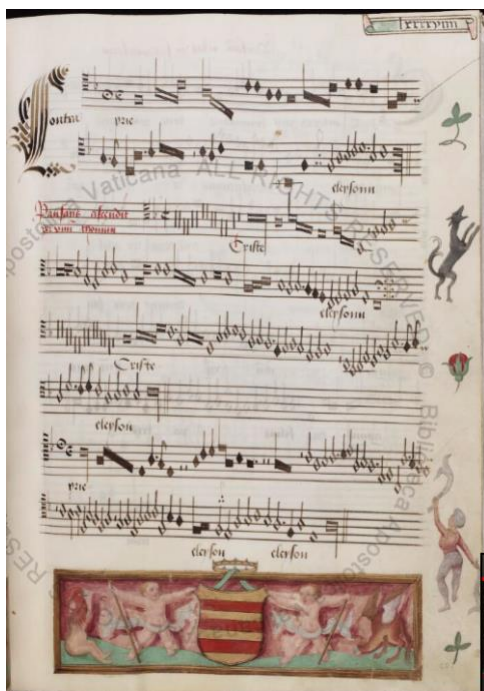 Contra kyrie
eleysonn
Pausans ascendit
Criste
eleysonn
Criste
eleyson
kyrie
eleyson eleyson
Vaticana ALL RIGHTS RESERVED © Biblioteca Aposto